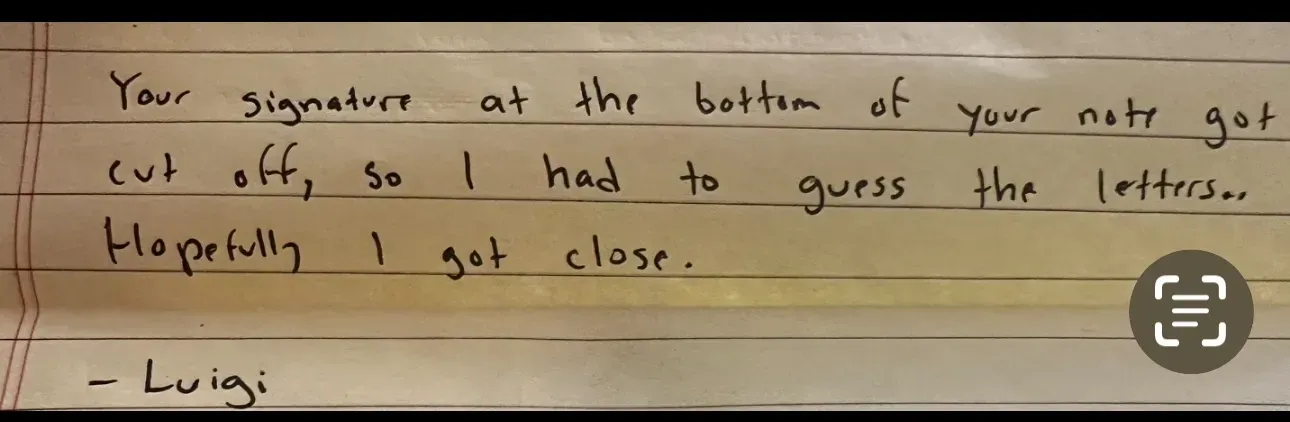 Your signature at the bottom of your note got
cut off, so I had to guess the letters...
Hopefully I got close.
- Luigi